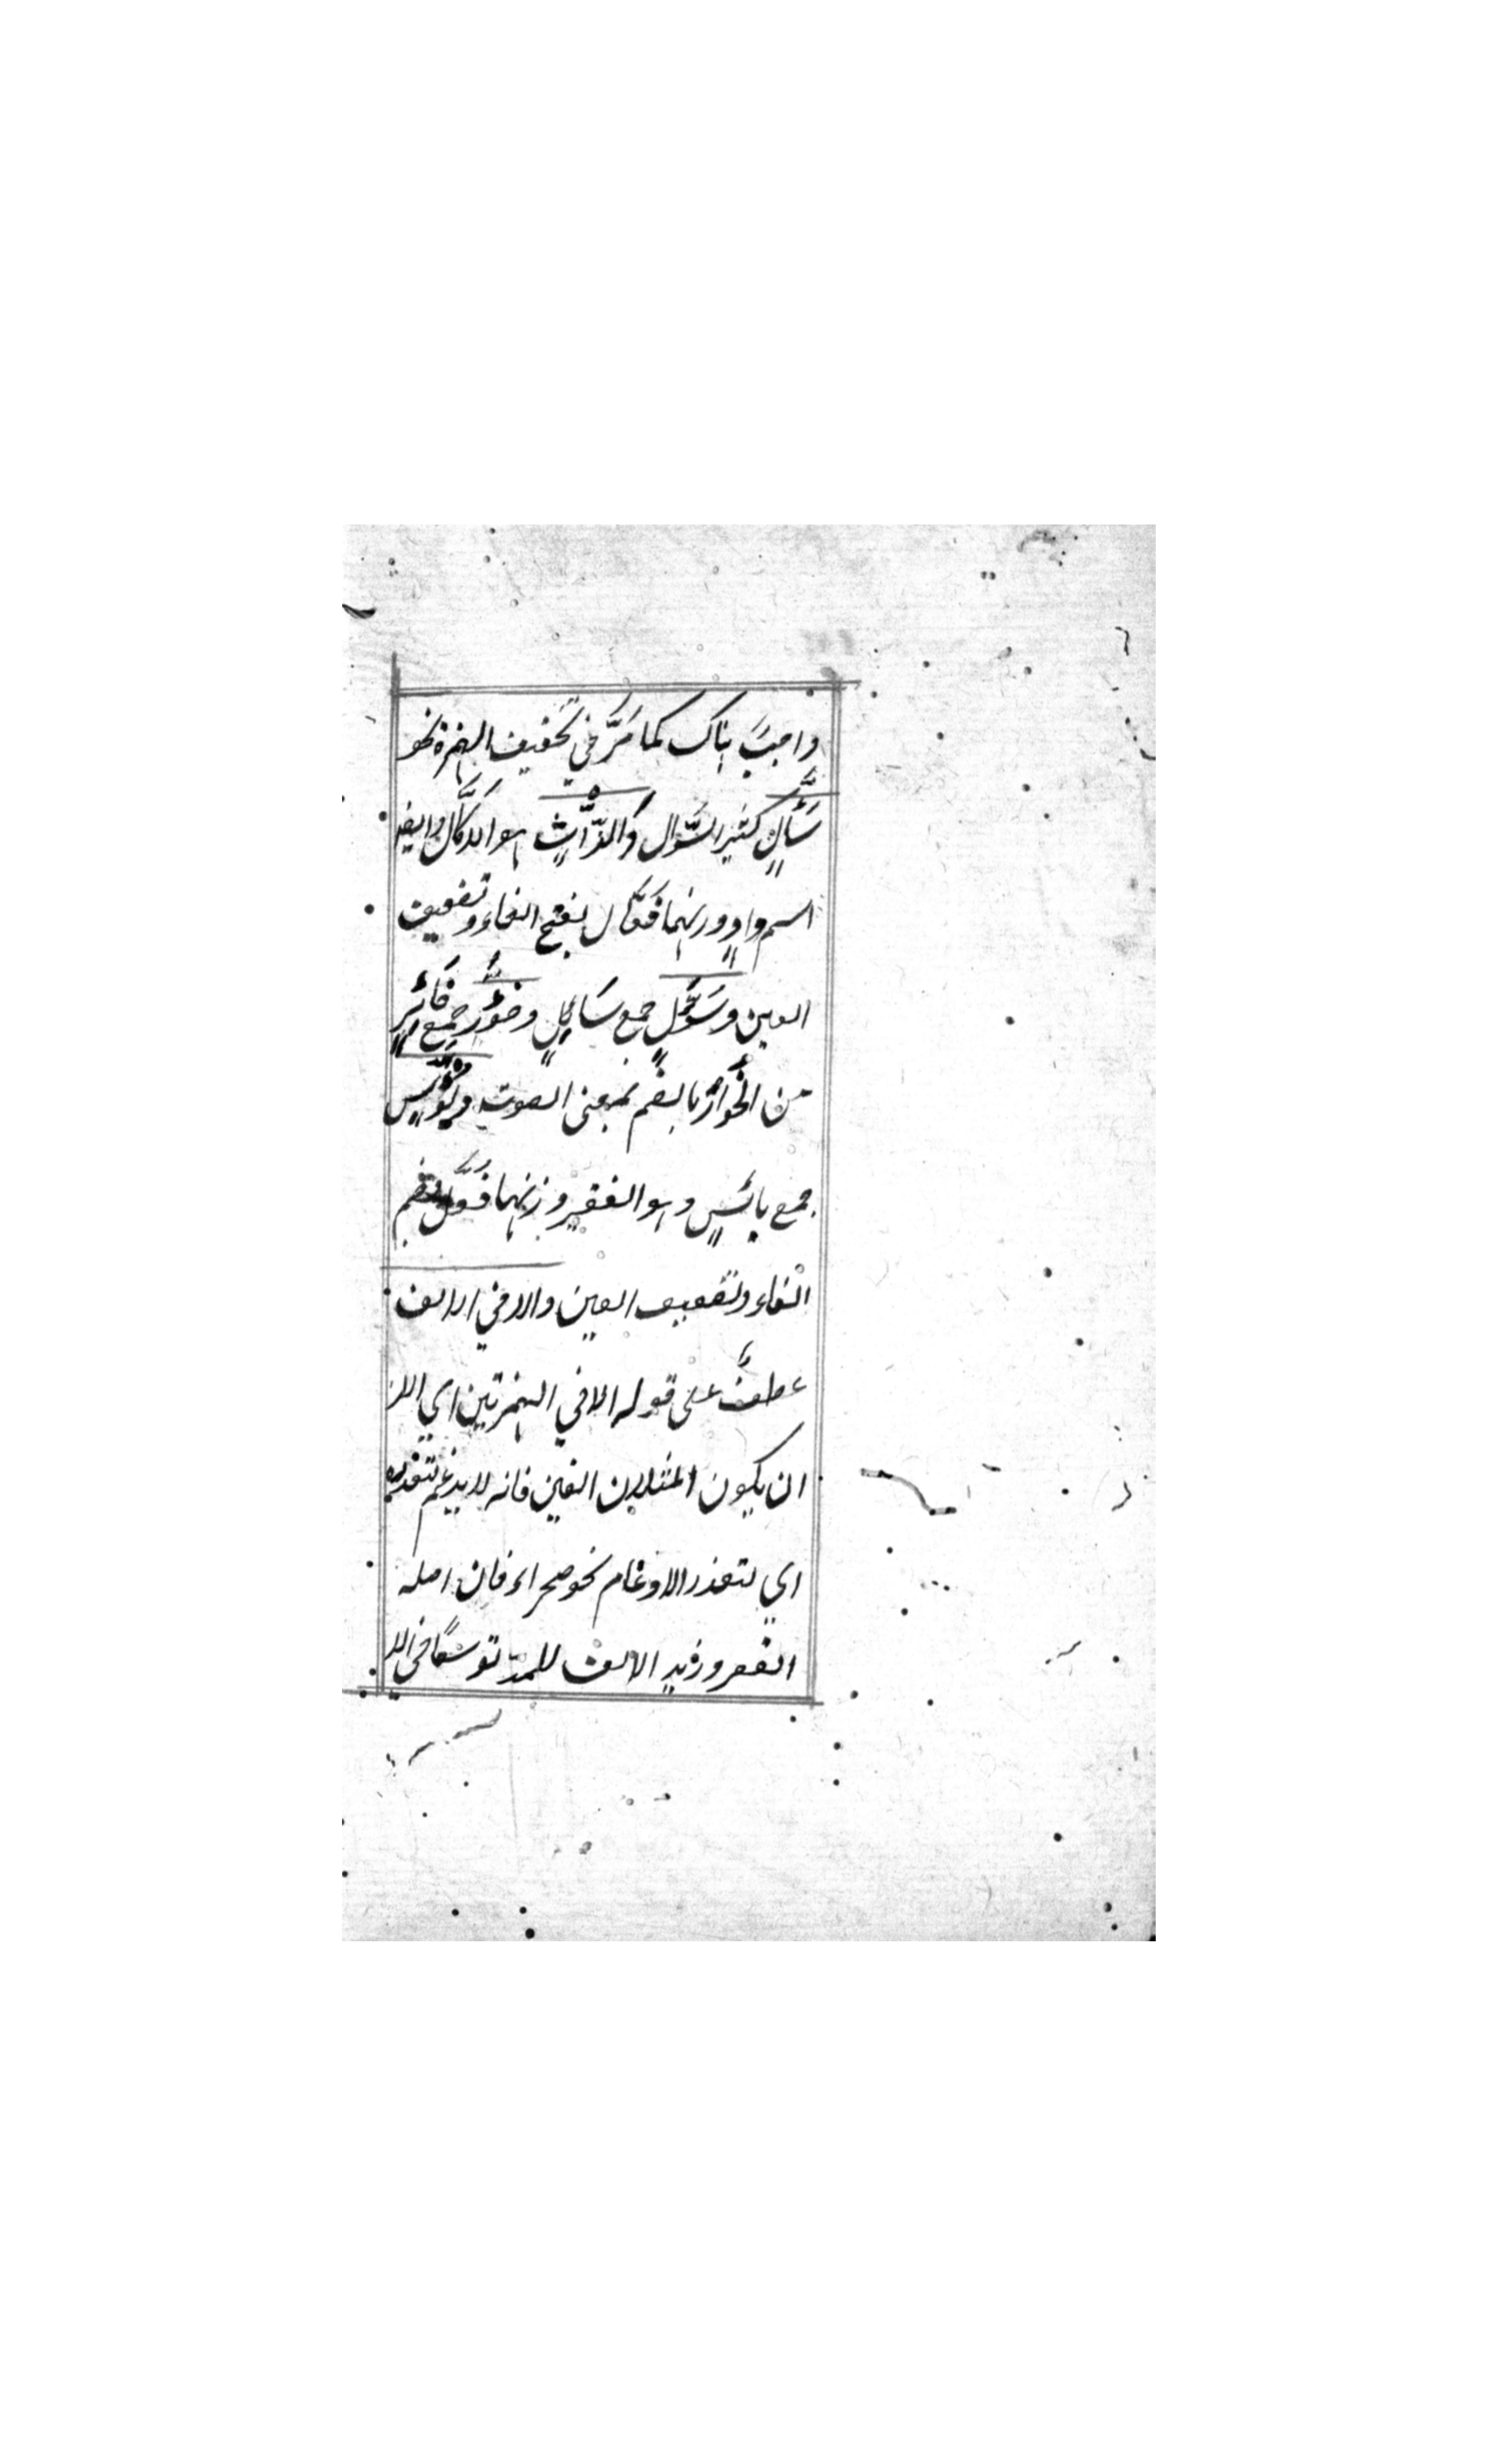 واجبٌ هناك كما مَرَّ في تخفيف الهمزة نحو
سَئَّالٍ كثير السّؤال والدَّأّاثِ هو الاكّال وايضا
اسم وادٍ ووزنهما فَعَّال بفتح الفاء وتضعيف
العين وسُؤَّلٍ جمع سَائلٍ وخؤَّر جمع خَائرٍ
من الخُوَار بالضم بمعنى الصوت وبُؤَّسٍ
جمع بائسٍ وهو الفقير وزنهما فُعَّل بضم
الفاء وتضعيف العين والا في الالف
عطفٌ على قوله الا في الهمزتين اي الا
ان يكون المثلان الفين فانه لا يدغم لتعذره
اي لتعذر الادغام نحو صحراء فان اصله
القصر وزيد الالف للمدّ توسّعًا في